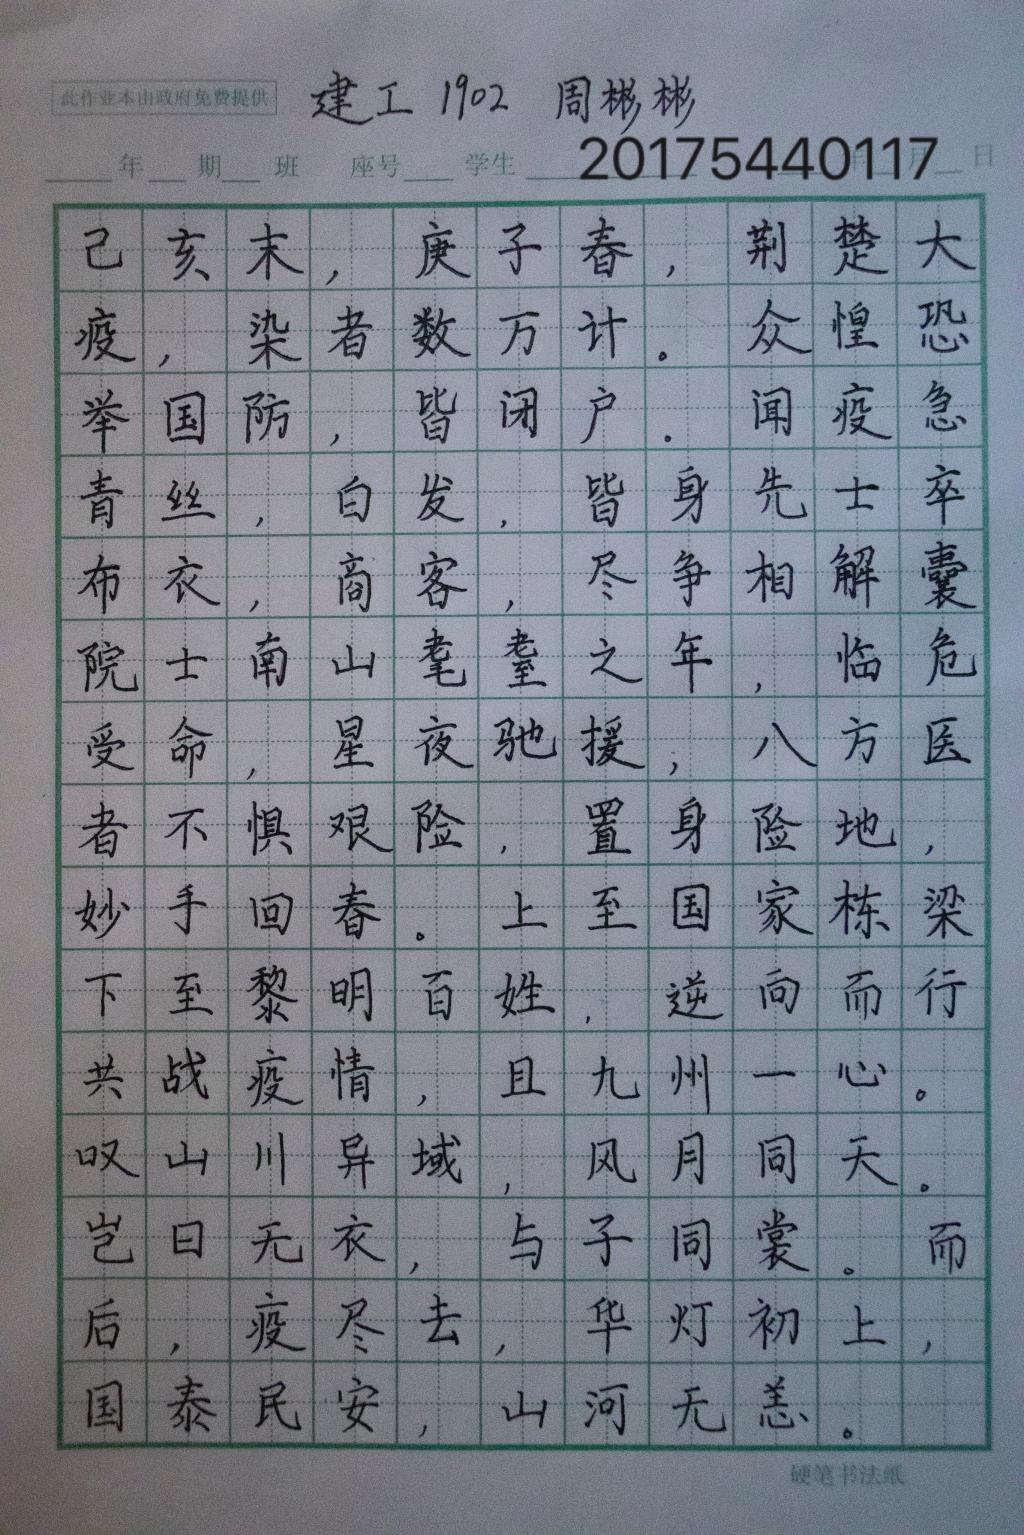 此作业本由政府免费提供 建工 1902 周彬彬
年 期 班 座号 学生 20175440117 年 月 日
己亥末，庚子春，荆楚大
疫，染者数万计。众惶恐
举国防，皆闭户。闻疫急
青丝，白发，皆身先士卒
布衣，商客，尽争相解囊
院士南山耄耋之年，临危
受命，星夜驰援，八方医
者不惧艰险，置身险地，
妙手回春。上至国家栋梁
下至黎明百姓，逆向而行
共战疫情，且九州一心。
叹山川异域，风月同天。
岂曰无衣，与子同裳。而
后，疫尽去，华灯初上，
国泰民安，山河无恙。
硬笔书法纸